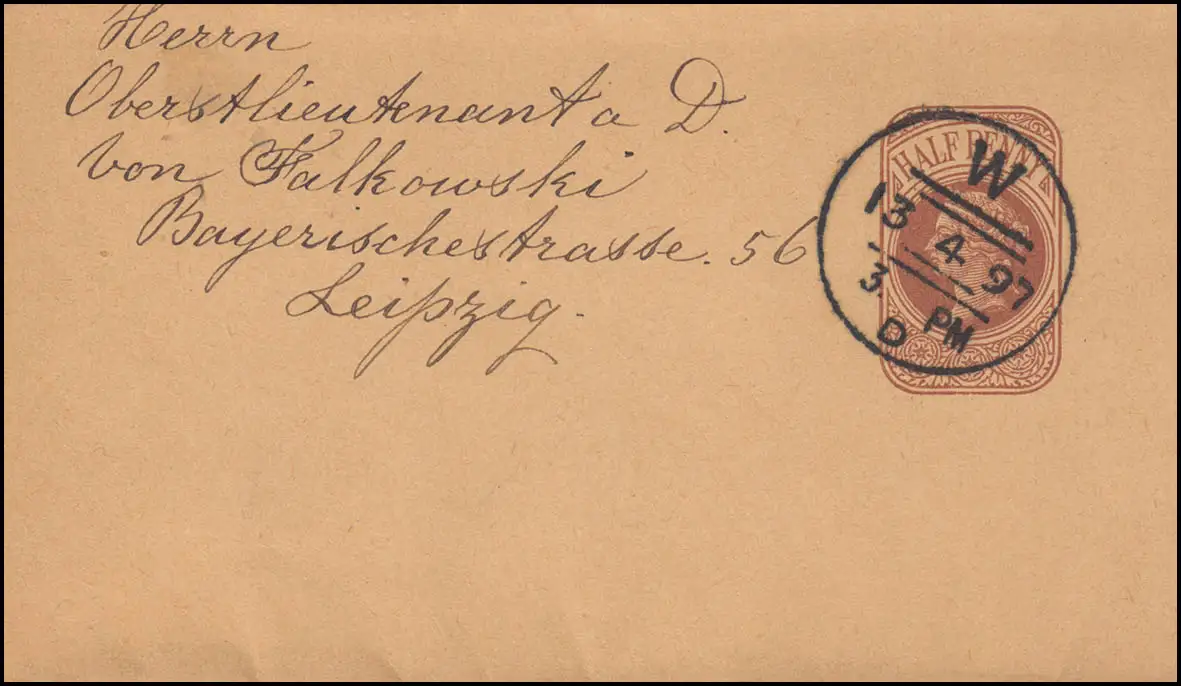 Herrn
Oberstlieutenant a D.
von Falkowski
Bayerischestrasse. 56
Leipzig.
HALF PENNY
W
13 4 97
3. PM
D